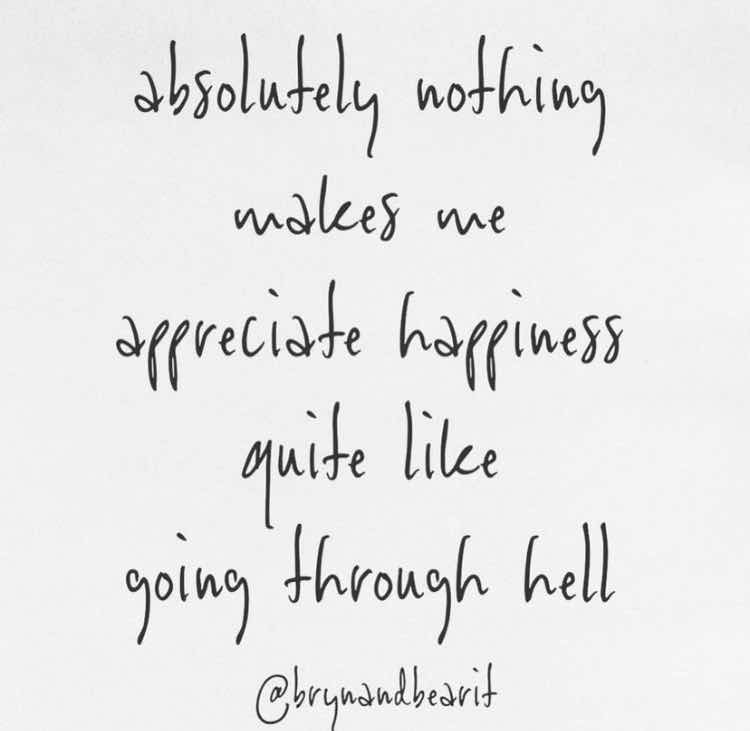 absolutely nothing
makes me
appreciate happiness
quite like
going through hell
@brynandbearit